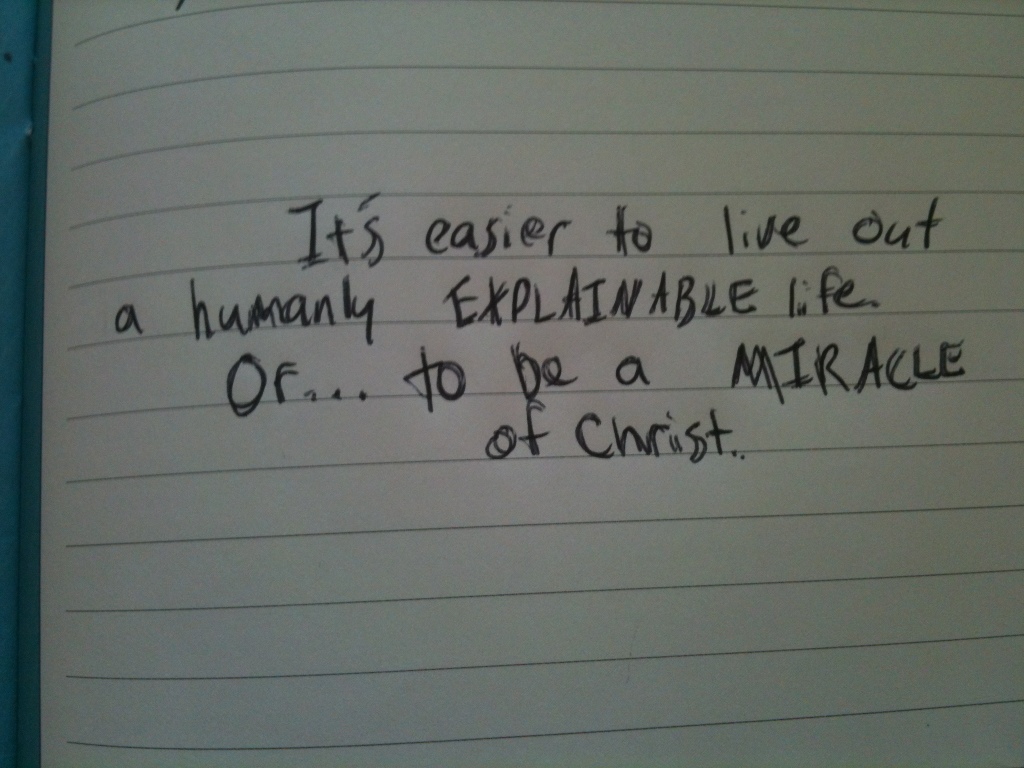 It's easier to live out
a humanly EXPLAINABLE life.
Or... to be a MIRACLE
of Christ..